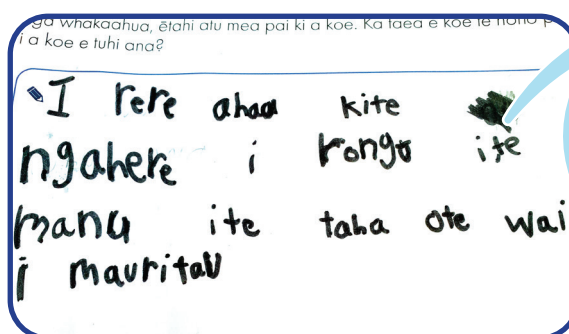 whakaahua, ētahi atu mea pai ki a koe. Ka taea e koe te hono
i a koe e tuhi ana?
I rere ahaa kite
ngahere i rongo ite
manu ite taha ote wai
i mauritau